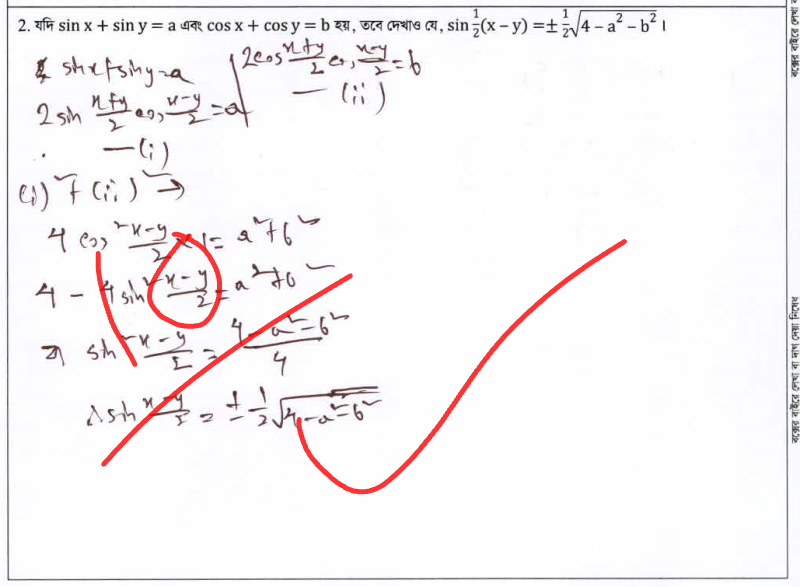 2. যদি sin x + sin y = a এবং cos x + cos y = b হয়, তবে দেখাও যে, sin ½(x − y) = ± ½√(4 − a² − b²) ।
sin x + sin y = a
2 sin (x+y)/2 cos (x−y)/2 = a
— (i)
2 cos (x+y)/2 cos (x−y)/2 = b
— (ii)
(i)² + (ii)² ⇒
4 cos² (x−y)/2 × 1 = a² + b²
4 − 4 sin² (x−y)/2 = a² + b²
বা sin² (x−y)/2 = (4 − a² − b²)/4
∴ sin (x−y)/2 = ± ½√(4 − a² − b²)
বক্সের বাইরে লেখা বা দাগ দেয়া নিষেধ